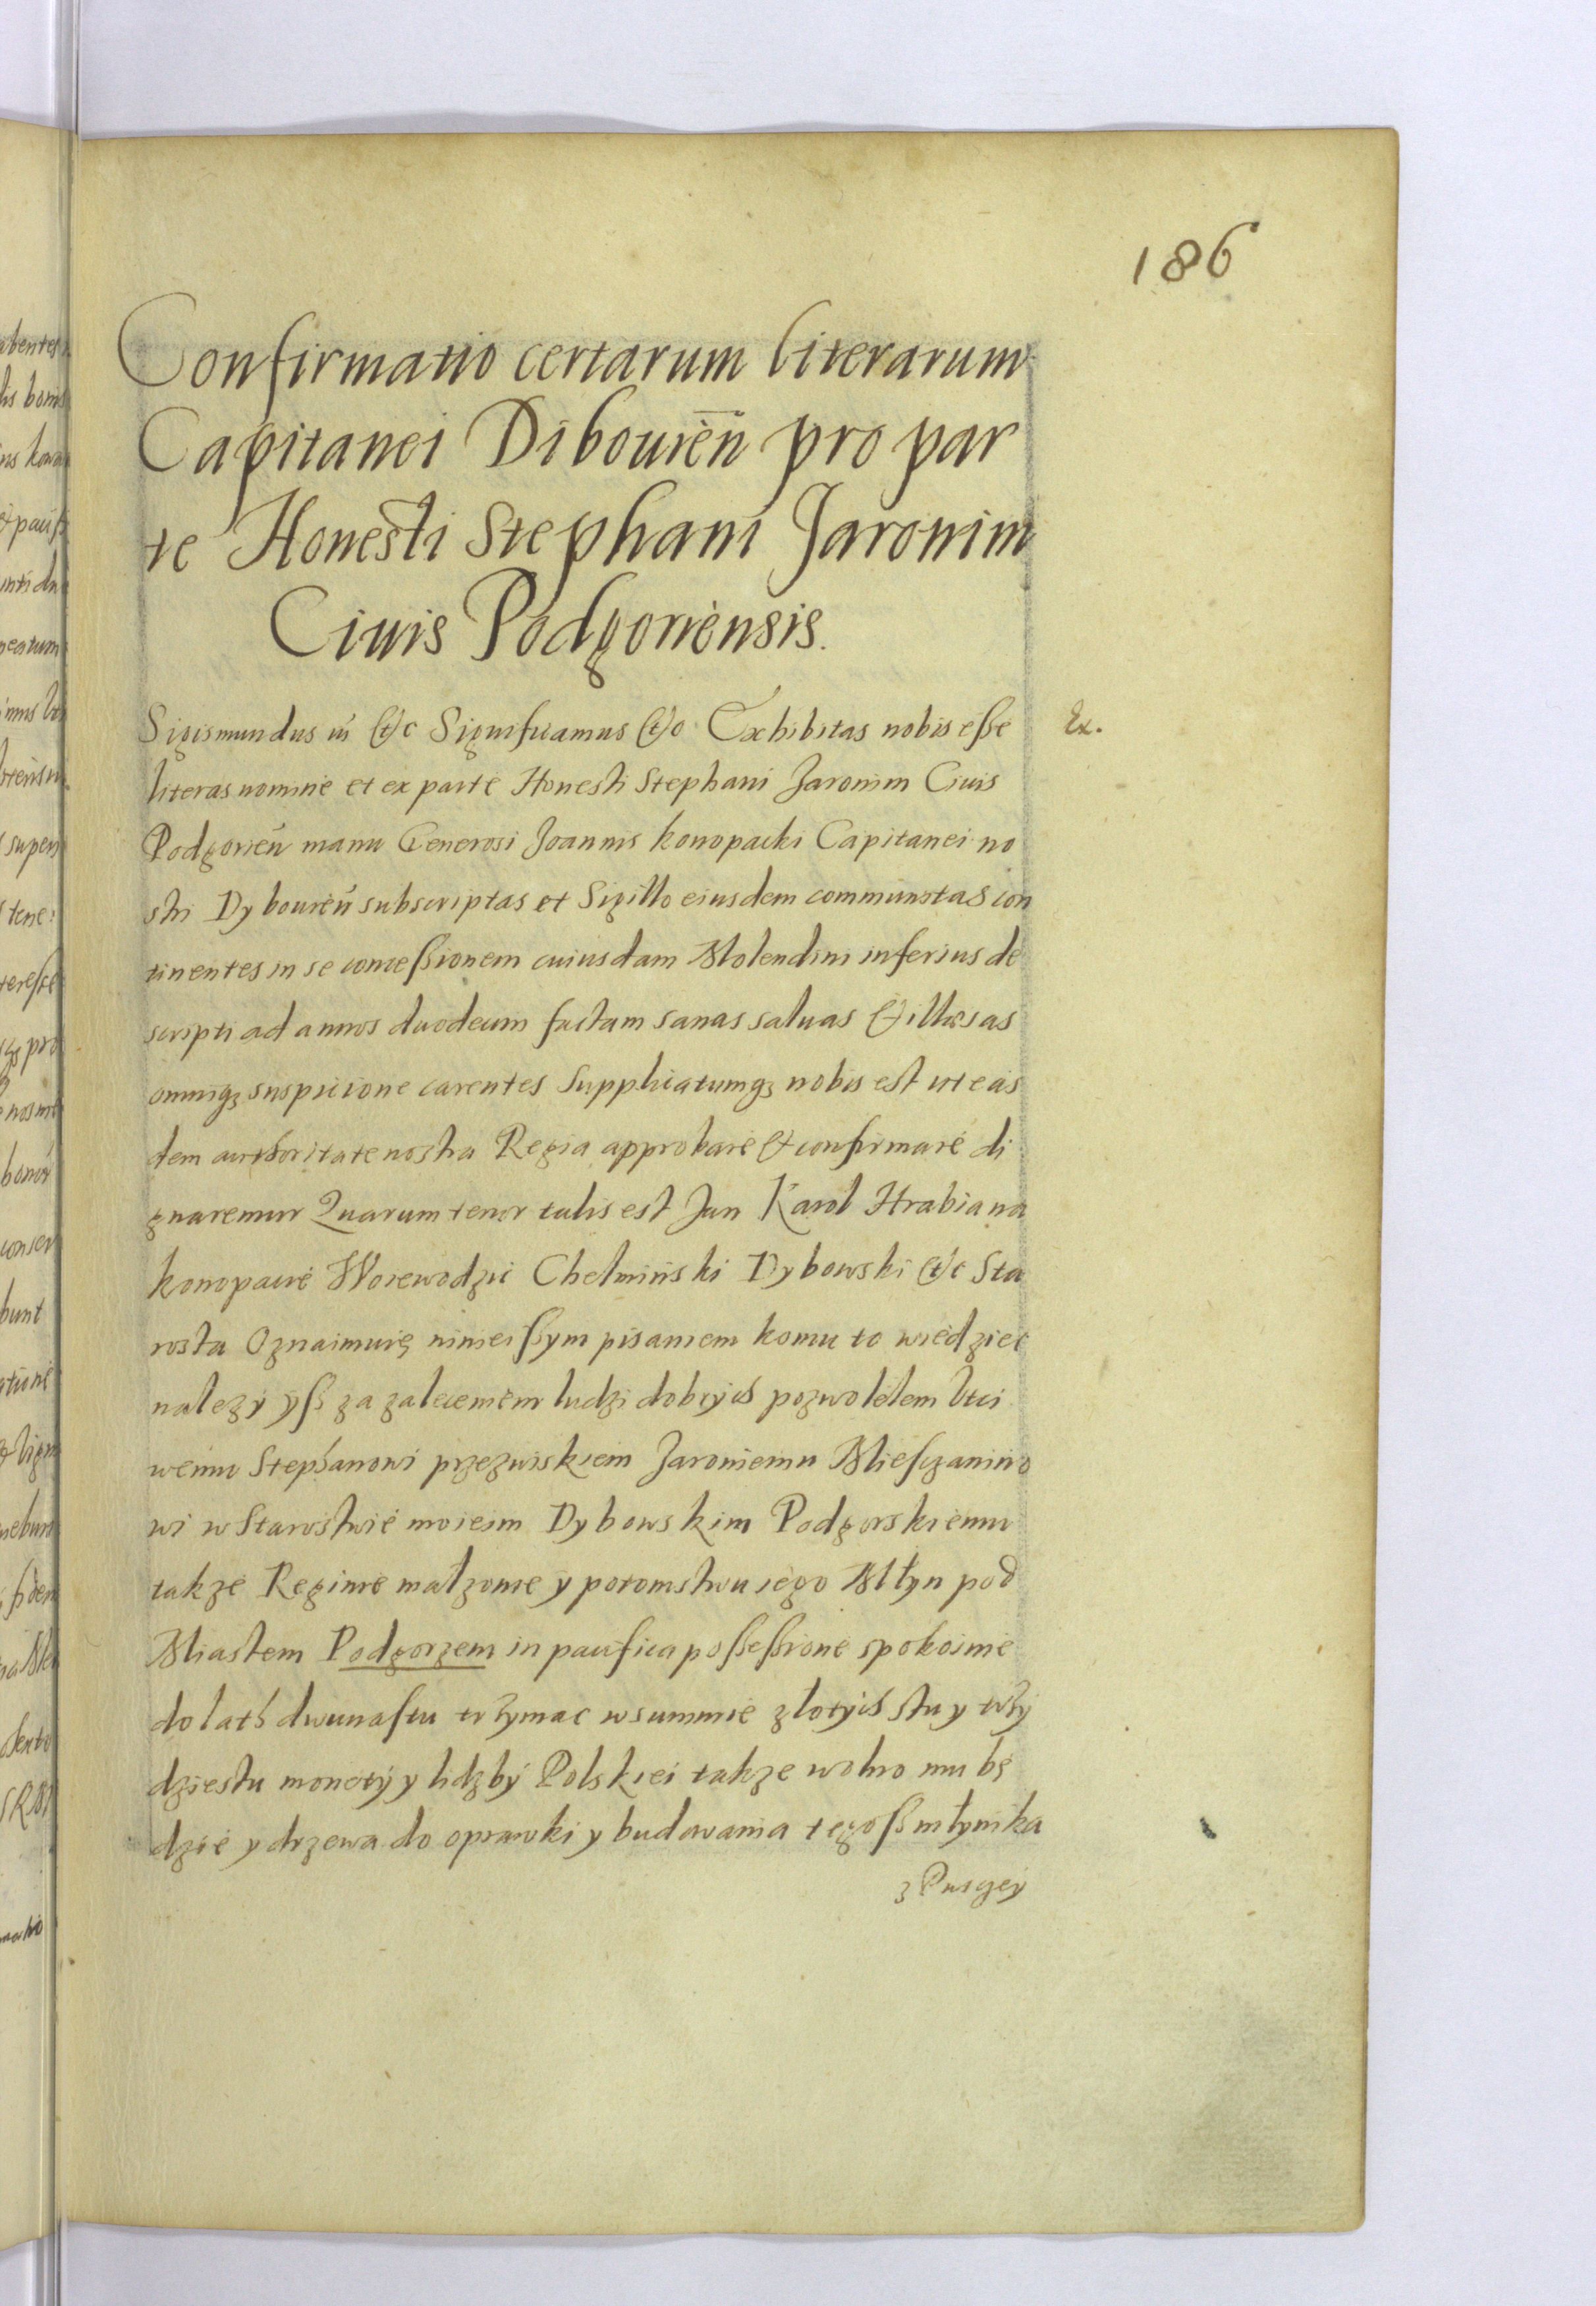 186
Confirmatio certarum literarum
Capitanei Dibouieñ pro par
te Honesti Stephani Jaronim
Ciuis Podgoriensis.
Sigismundus &c Significamus &c Exhibitas nobis esse
Ex.
literas nomine et ex parte Honesti Stephani Jaronim Ciuis
Podgorień manu Generosi Joannis Konopacki Capitanei no
stri Dybouień subscriptas et Sigillo eiusdem communitas con
tinentes in se concessionem cuiusdam Molendini inferius de
scripti ad annos duodecim factam sanas saluas & illæsas
omniq; suspicione carentes Supplicatumq; nobis est ut eas
dem authoritate nostra Regia approbare & confirmare di
gnaremur Quarum tenor talis est Jan Karol Hrabia na
Konopacie Woiewodzic Chelmiński Dybowski &c Sta
rosta Oznaimuię ninieiszym pisaniem komu to wiedziec
nalezy ysz za zaleceniem ludzi dobrych pozwolilem Vtci
wemu Stephanowi przezwiskiem Jaroniemu Miesczanino
wi w Starostwie moieim Dybowskim Podgorskiemu
takze Reginie małzonie y potomstwu iego Młyn pod
Miastem Podgorzem in pacifica possessione spokoinie
do lath dwunastu trzymac w summie zlotych stu y trzy
dziestu monety y lidzby Polskiei takze wolno mu bę
dzie y drzewa do oprawki y budowania tegosz młynika
z Pusczey